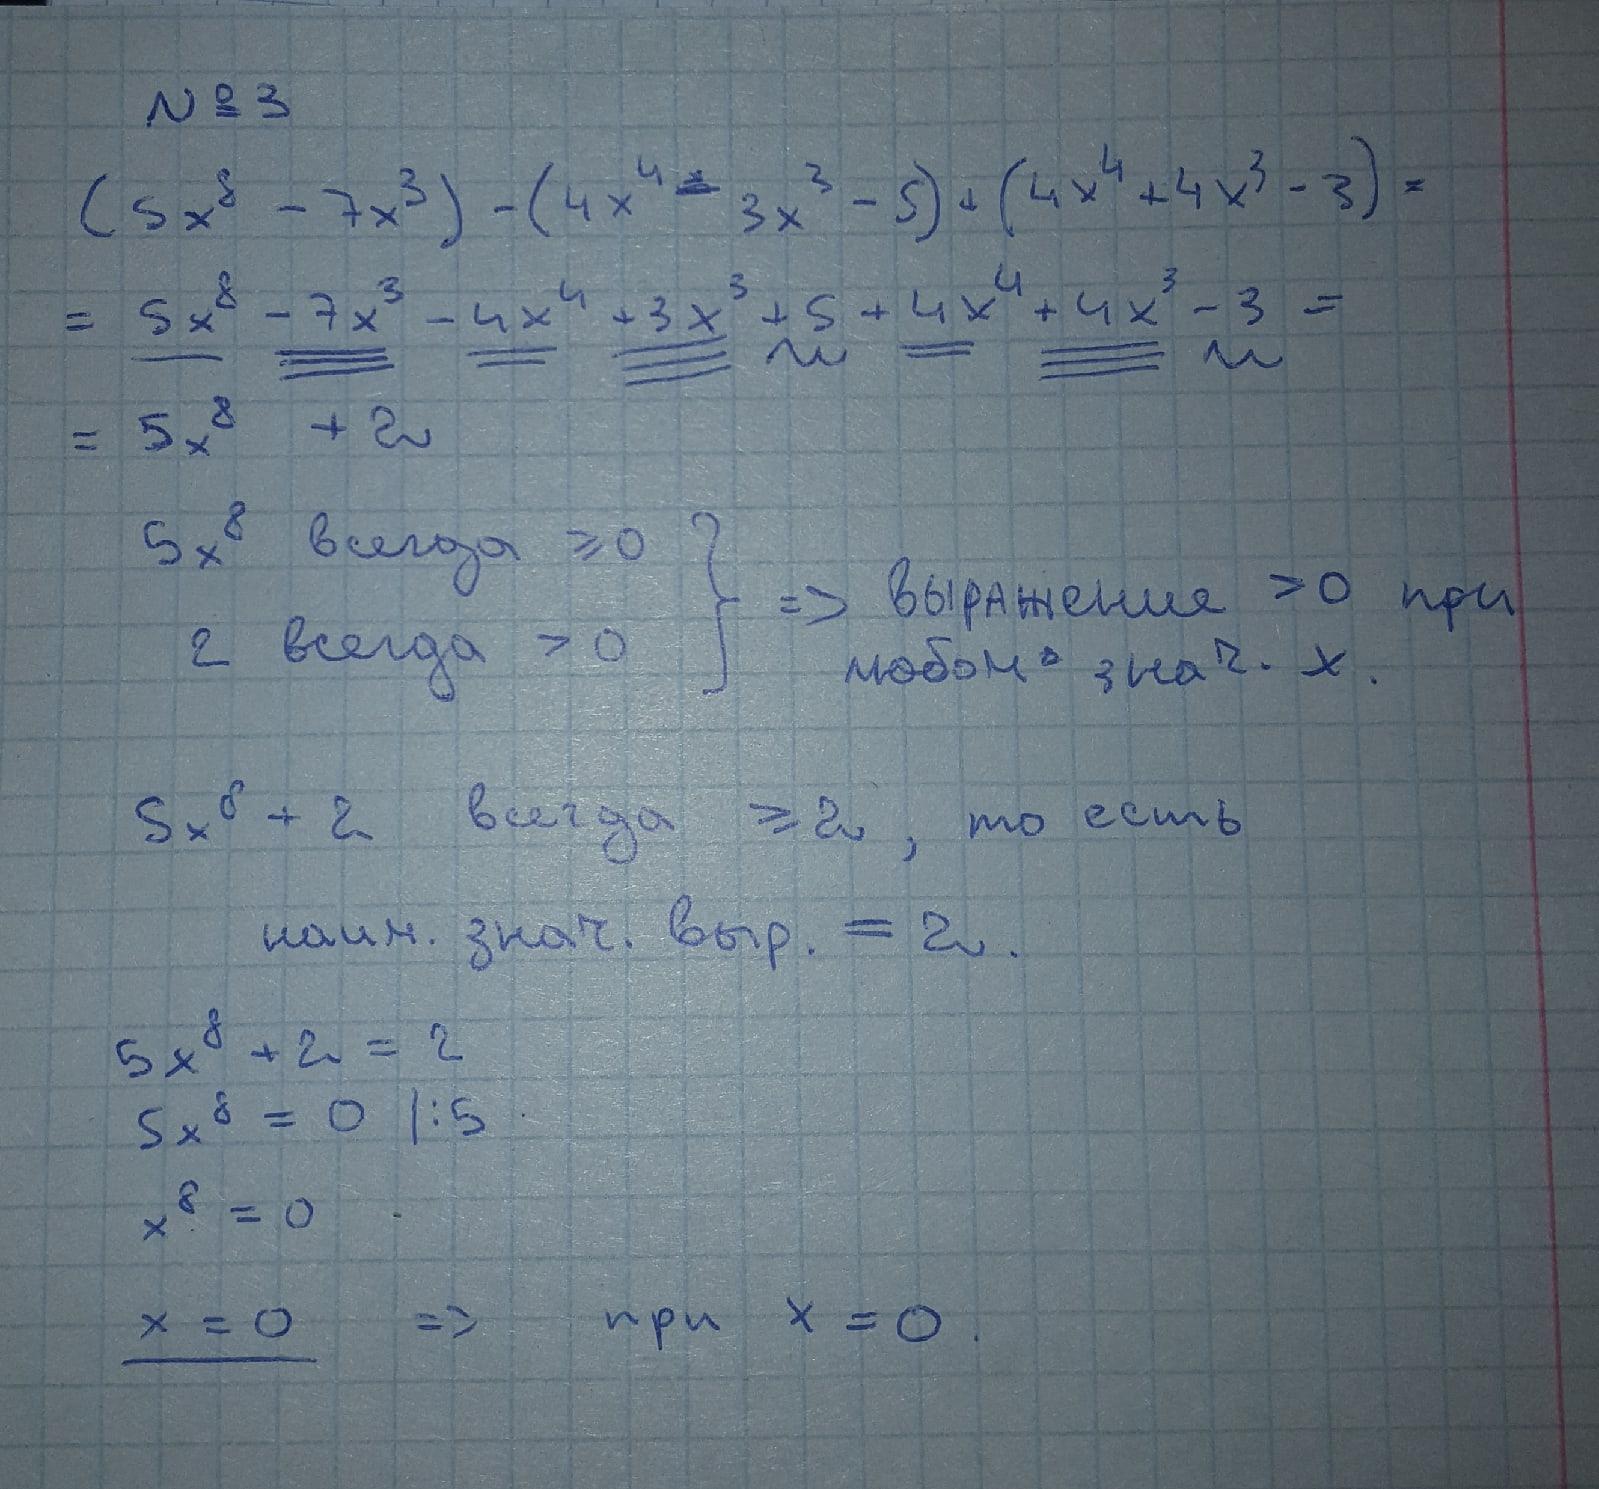 № 3
(5x⁸ - 7x³) - (4x⁴ - 3x³ - 5) + (4x⁴ + 4x³ - 3) =
= 5x⁸ - 7x³ - 4x⁴ + 3x³ + 5 + 4x⁴ + 4x³ - 3 =
= 5x⁸ + 2
5x⁸ всегда ≥ 0
2 всегда > 0
} => выражение > 0 при
любом знач. x.
5x⁸ + 2 всегда ≥ 2, то есть
наим. знач. выр. = 2.
5x⁸ + 2 = 2
5x⁸ = 0 |:5
x⁸ = 0
x = 0 => при x = 0.